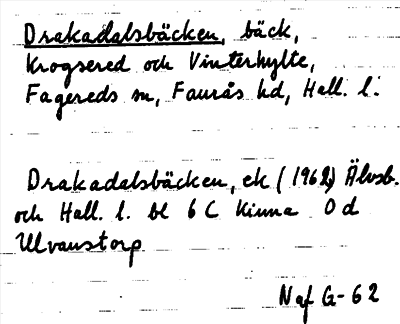 Drakadalsbäcken, bäck,
Krogsered och Vinterhylte,
Fagereds sn, Faurås hd, Hall. l.
Drakadalsbäcken, ek (1962) Älvsb.
och Hall. l. bl 6 C Kinna 0 d
Ulvanstorp
Naf G-62